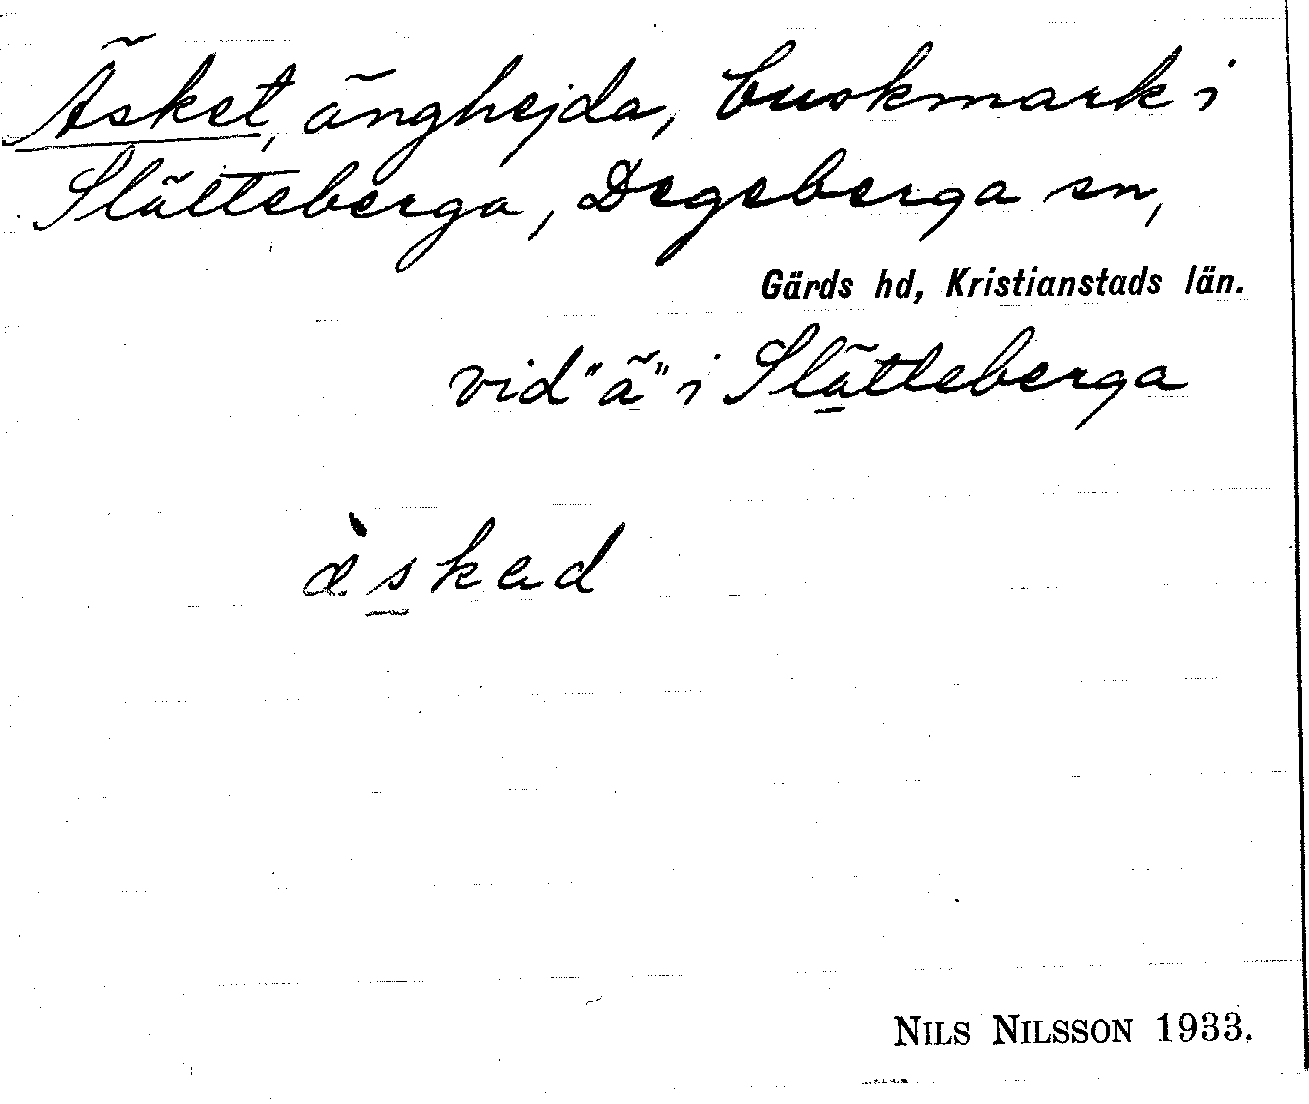 Äsket, änghejda, buskmark i
Slätteberga, Degeberga sn,
Gärds hd, Kristianstads län.
vid "ä" i Slätteberga
æ̀skad
NILS NILSSON 1933.